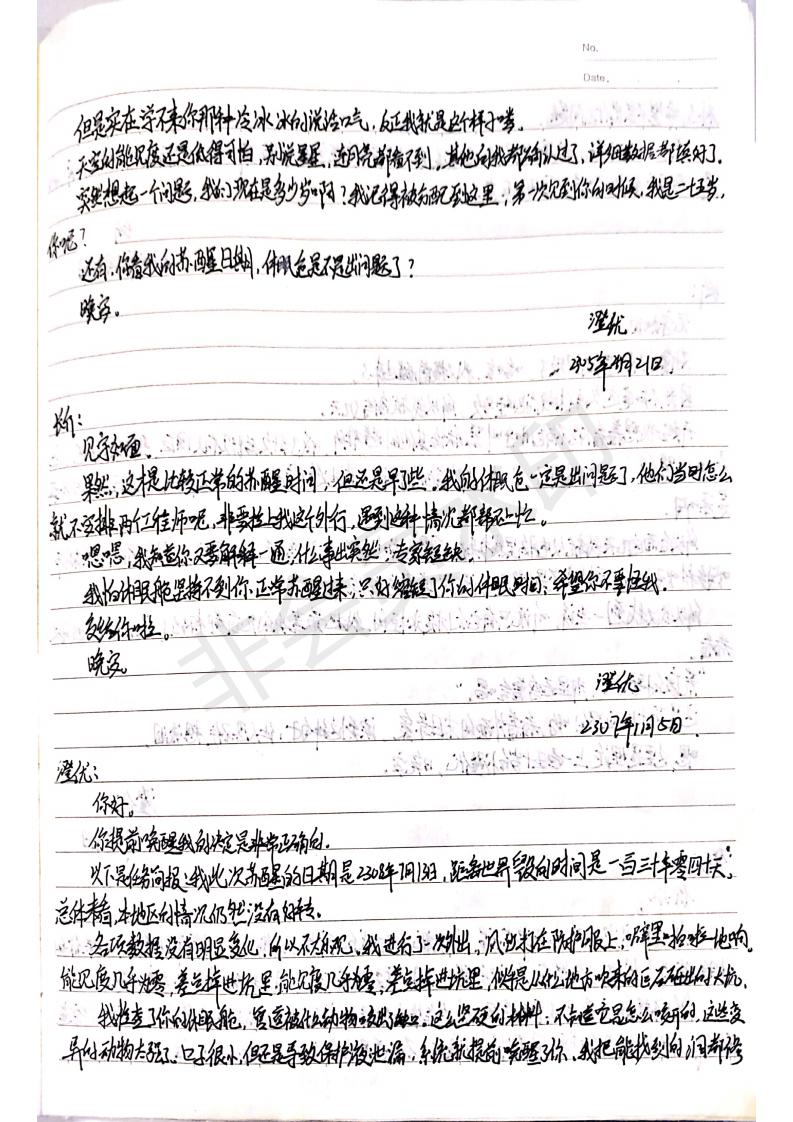 No.
Date.
但是实在学不来你那种冷冰冰的说话口气，反正我就是这个样子喽。
天空的能见度还是低得可怕，别说星星，连月亮都看不到。其他的我都确认过了，详细数据都填好了。
突然想起一个问题，我们现在是多少岁啊？我记得被分配到这里，第一次见到你的时候，我是二十五岁，
你呢？
还有，你看我的苏醒日期，休眠仓是不是出问题了？
晚安。
澄优
月21日
见字如面。
果然，这才是比较正常的苏醒时间，但还是早了些。我的休眠仓一定是出问题了，他们当时怎么
就不安排两个工程师呢，非要拉上我这个外行，遇到这种情况都帮不上忙。
嗯嗯，我知道你又要解释一通，什么事出突然，专家短缺。
我怕休眠舱坚持不到你正常苏醒过来，只好缩短了你的休眠时间，希望你不要怪我。
交给你啦。
晚安
澄优
2307年1月5日
非会员水印
澄优：
你好。
你提前唤醒我的决定是非常正确的。
以下是任务简报：我此次苏醒的日期是2308年7月13日，距离世界毁灭的时间是一百三十年零四十天，
总体来看，本地区的情况仍然没有好转。
各项数据没有明显变化，所以不太乐观。我进行了一次外出，风沙打在防护服上，噼里啪啦地响。
能见度几乎为零，差点掉进坑里，能见度几乎为零，差点掉进坑里，似乎是从什么地方吹来的巨石砸出的大坑。
我检查了你的休眠舱，管道被什么动物咬出了缺口，这么坚硬的材料，不知道它是怎么咬开的，这些变
异的动物太强了。口子很小，但还是导致保护液泄漏，系统就提前唤醒了你，我把能找到的洞都修